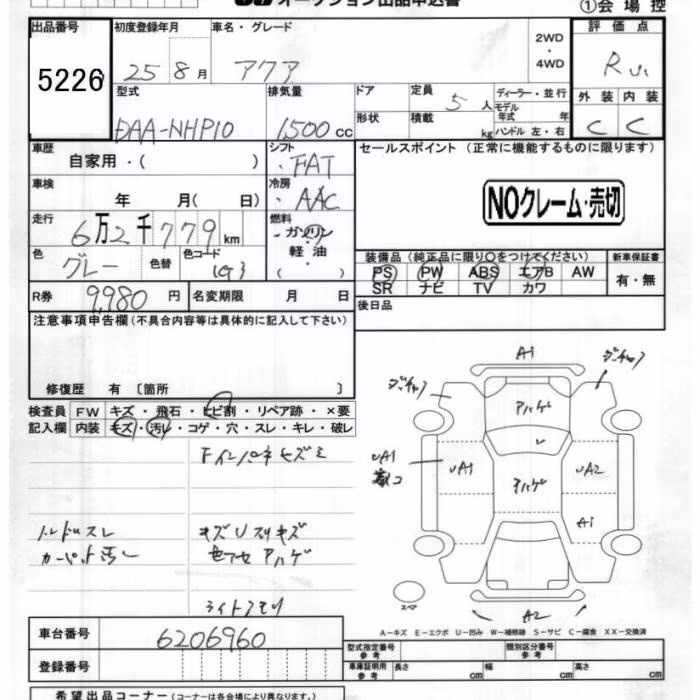 オークション出品申込書
①会場控
出品番号 初度登録年月 車名・グレード 評価点
5226 25 8月 アクア 2WD・4WD R
外装 内装
C C
型式 排気量 ドア 定員 5人 ディーラー・並行
モデル年式 年
DAA-NHP10 1,500cc 形状 積載 kg ハンドル 左・右
車歴 シフト セールスポイント (正常に機能するものに限ります)
自家用・( ) FAT
車検 冷房
年 月( 日) AAC NOクレーム・売切
走行 燃料
6万2千779km ・ガソリン
色 グレー 色替 色コード 1G3 軽油
・( )
装備品 (純正品に限り○をつけてください) 新車保証書
PS PW ABS エアB AW 有・無
SR ナビ TV カワ
R券 9,980円 名変期限 月 日
後日品
注意事項申告欄 (不具合内容等は具体的に記入して下さい)
修復歴 有 〔箇所 〕
検査員 FW キズ・飛石・ヒビ割・リペア跡・×要
記入欄 内装 キズ・汚レ・コゲ・穴・スレ・キレ・破レ
A1
アハゲ
UA1 UA1 アハゲ UA2
A1
ハンドルスレ キズUスリキズ
カーペット汚レ アハゲ
スペア
A2
A-キズ E-エクボ U-凹み W-補修跡 S-サビ C-腐食 XX-交換済
車台番号 6206960
登録番号
型式指定番号 参考 類別区分番号 参考
車庫証明用 参考 長さ cm 幅 cm 高さ cm
希望出品コーナー (コーナーは各会場により異なります。)